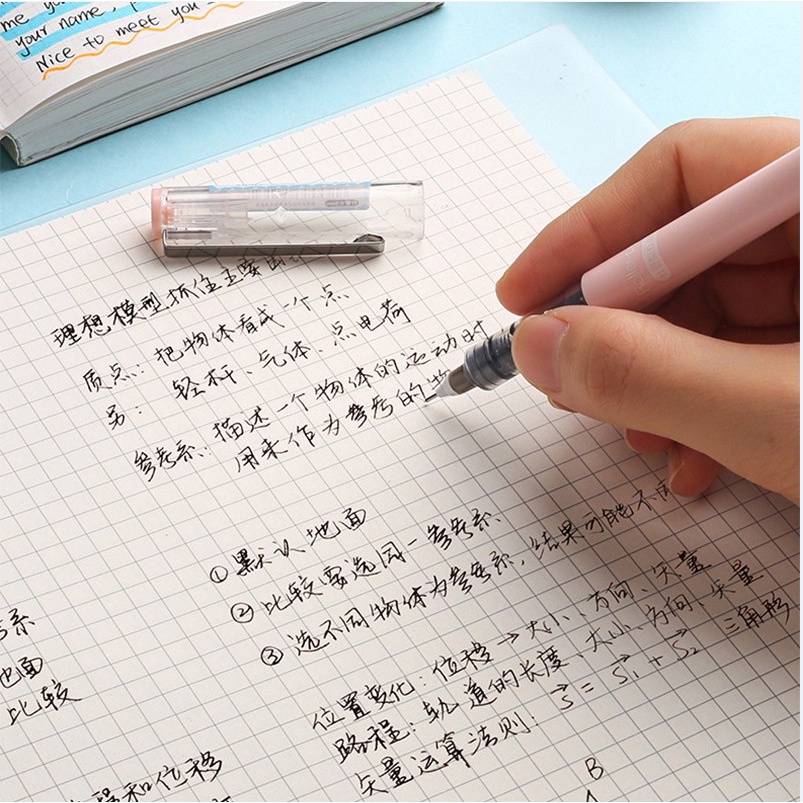 me yo
your name, p
Nice to meet you
理想模型抓住主要
质点: 把物体看成一个点
另: 轻杆、气体、点电荷
参考系: 描述一个物体的运动时
用来作为参考的
①默认地面
②比较要选同一参考系
③选不同物体为参考系,结果可能不同
系
地面
比较
位置变化: 位移→大小、方向、矢量
路程: 轨道的长度、大小、方向、矢量
矢量运算法则: s⃗ = s⃗₁ + s⃗₂ 三角形
和位移
B